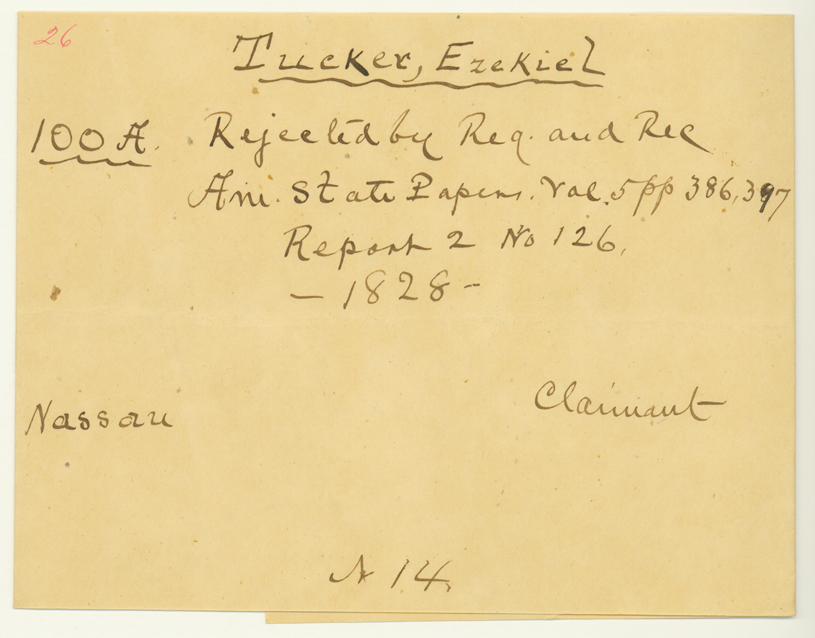 26
Tucker, Ezekiel
100 A. Rejected by Reg. and Rec
Am. State Papers. Vol. 5 pp 386, 397
Report 2 No 126.
— 1828 -
Claimant
Nassau
N 14.